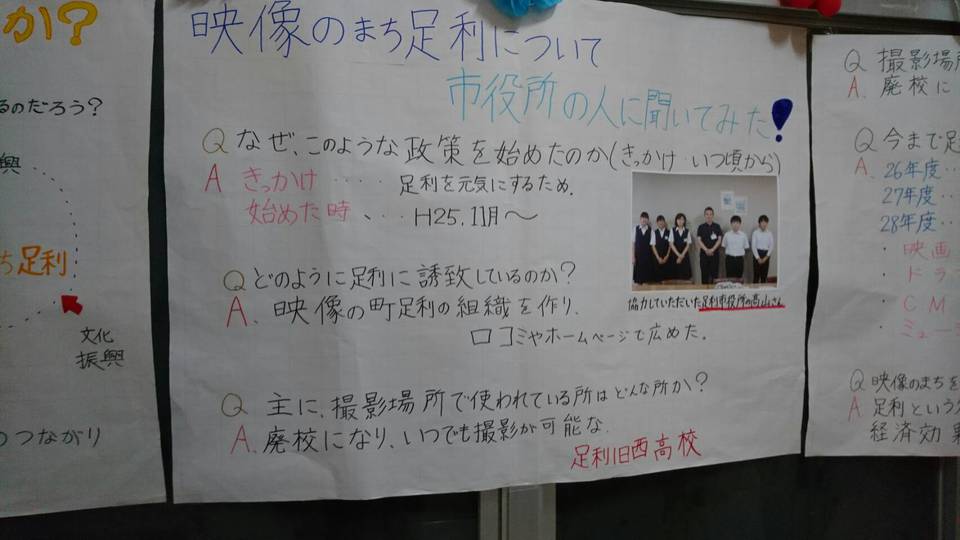 か?
るのだろう?
興
ち足利
文化
振興
のつながり
映像のまち足利について
市役所の人に聞いてみた!
Q なぜ、このような政策を始めたのか(きっかけ・いつ頃から)
A きっかけ ‥‥ 足利を元気にするため。
始めた時、‥‥ H25.11月〜
Q どのように足利に誘致しているのか?
A. 映像の町足利の組織を作り、
口コミやホームページで広めた。
協力していただいた足利市役所の高山さん
Q 主に、撮影場所で使われている所はどんな所か?
A. 廃校になり、いつでも撮影が可能な
足利旧西高校
Q 撮影場所
A. 廃校に
Q 今まで足
A. 26年度‥
27年度‥
28年度‥
・映画
・ドラ
・CM
・ミュージ
Q 映像のまちを
A 足利という
経済効果